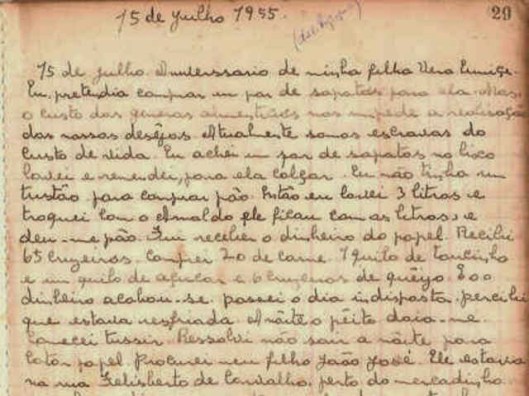 15 de julho 1955. 29
15 de julho. Aniverssario de minha filha Vera Eunice.
Eu pretendia comprar um par de sapatos para ela. Mas,
o custo dos generos alimenticios nos impede a realisação
dos nossos desêjos. Atualmente somos escravos do
custo de vida. Eu achei um par de sapatos no lixo
lavei e remendei, para ela calçar. Eu não tinha um
tustão para comprar pão. Então eu lavei 3 litros e
troquei com o Arnaldo ele ficou com os litros, e
deu-me pão. Fui receber o dinheiro do papel. Recibi
65 cruzeiros. Comprei 20 de carne. 1 quilo de toucinho
e um quilo de açucar e 6 cruzeiros de quêijo. E o
dinheiro acabou-se. passei o dia indisposta. percibi
que estava resfriada. A nôite o pêito doia-me
Comecei tussir. Ressolvi não sair a nôite para
catar papel. Procurei meu filho João José. Ele estava
na rua Felisberto de Carvalho, perto do mercadinho